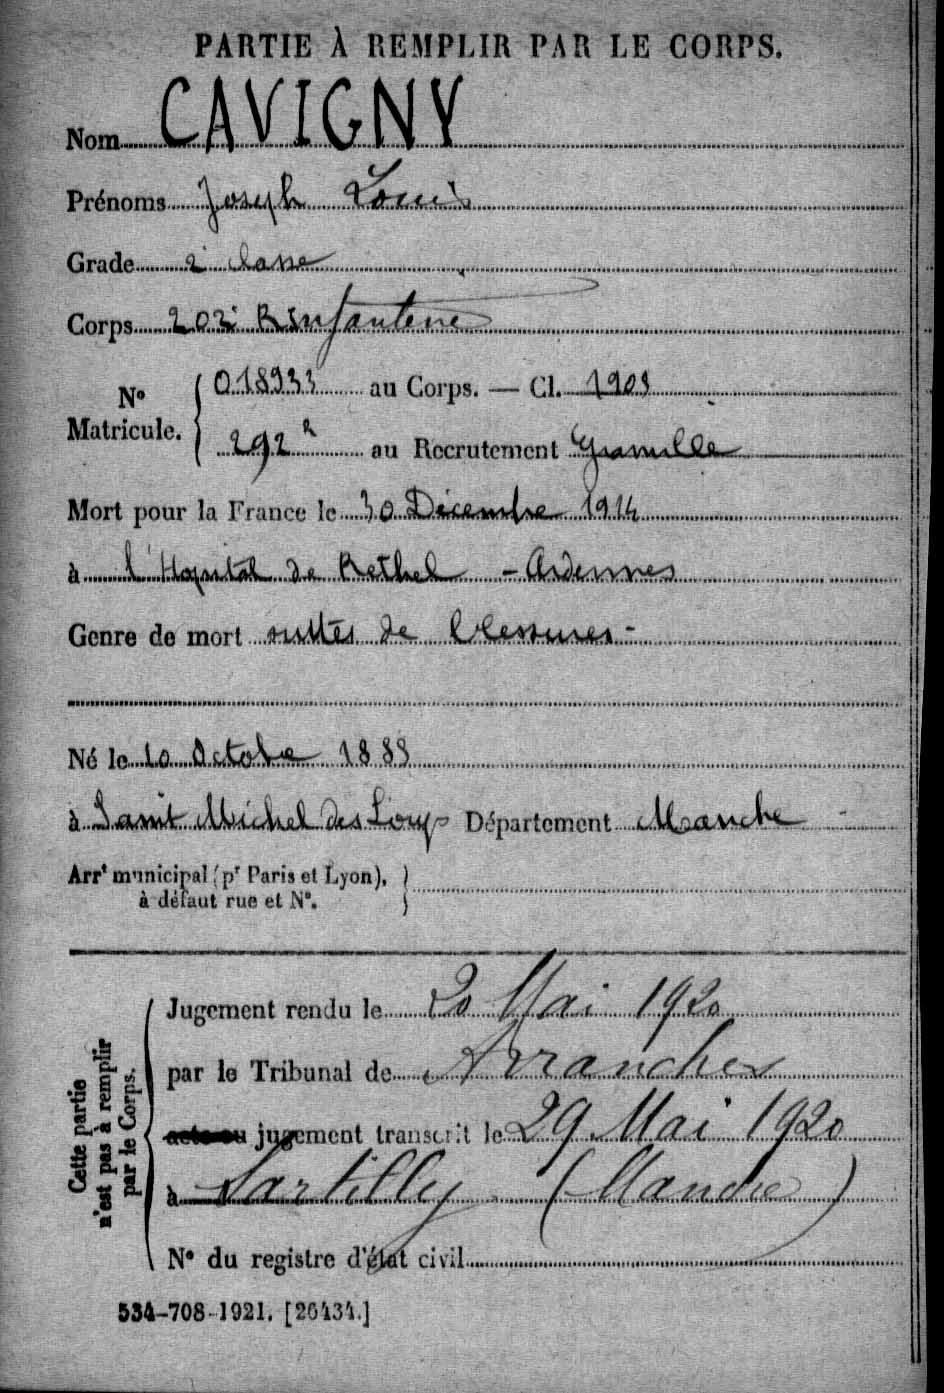 PARTIE À REMPLIR PAR LE CORPS.
Nom CAVIGNY
Prénoms Joseph Louis
Grade 2e classe
Corps 202e R Infanterie
No Matricule. { 018933 au Corps. — Cl. 1908
292 au Recrutement Granville
Mort pour la France le 30 Décembre 1914
à l'Hopital de Rethel - Ardennes
Genre de mort suites de blessures -
Né le 10 Octobre 1888
à Saint Michel des Loups Département Manche
Arrt municipal (pr Paris et Lyon),
à défaut rue et No.
Cette partie n'est pas à remplir par le Corps.
Jugement rendu le 20 Mai 1920
par le Tribunal de Avranches
acte ou jugement transcrit le 29 Mai 1920
à Sartilly (Manche)
No du registre d'état civil
534-708-1921. [26434.]